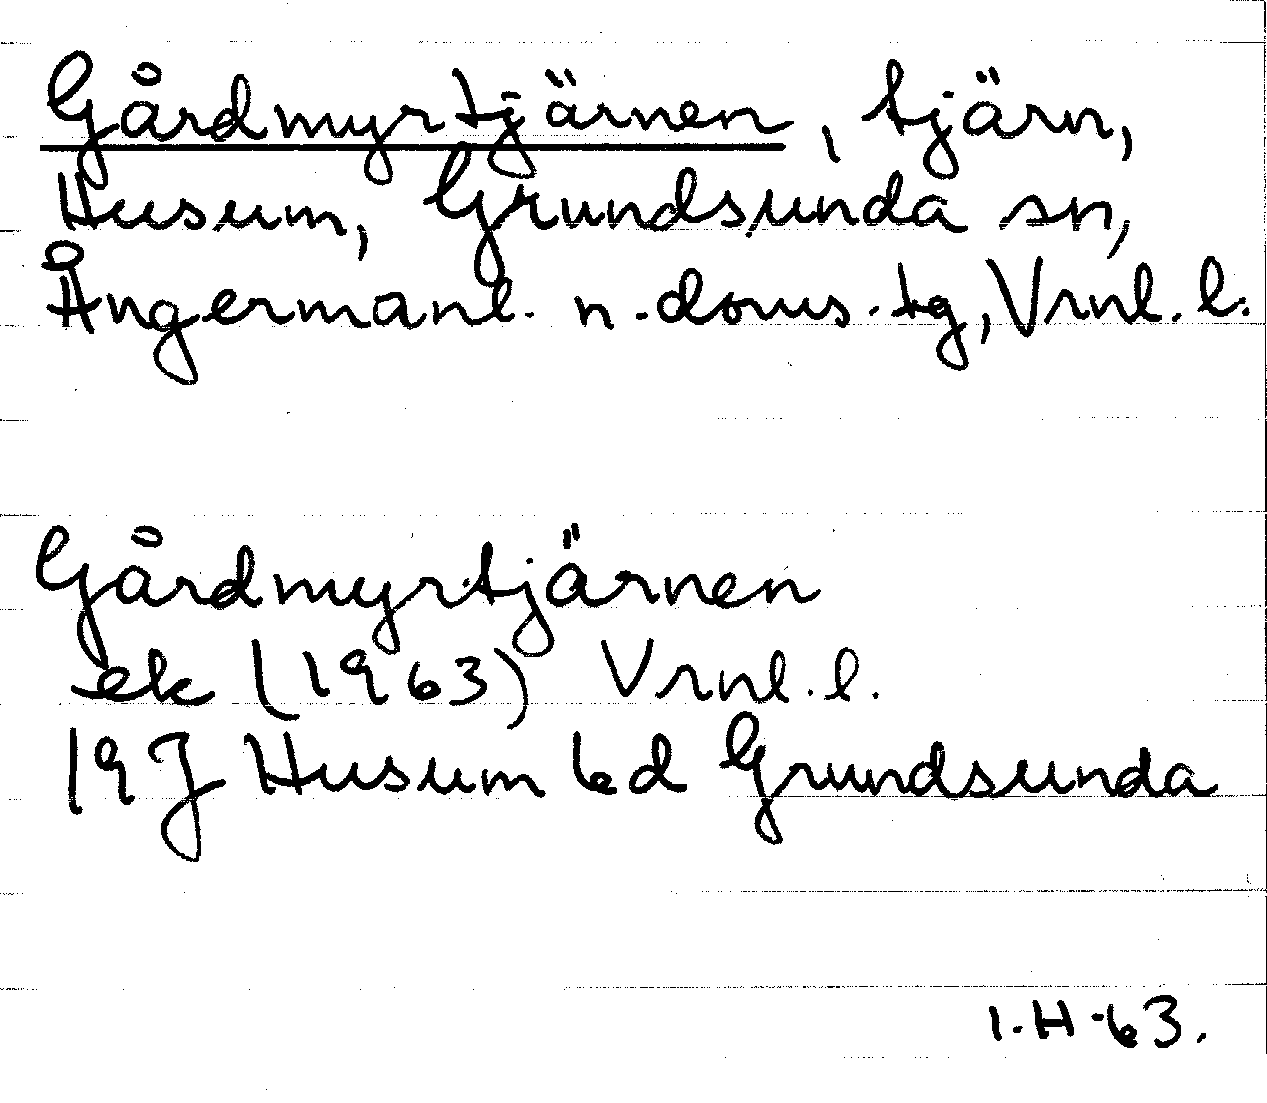 Gårdmyrtjärnen, tjärn,
Husum, Grundsunda sn,
Ångermanl. n. doms. tg, Vrnl. l.
Gårdmyrtjärnen
ek (1963) Vrnl. l.
19J Husum bd Grundsunda
I.H-63.